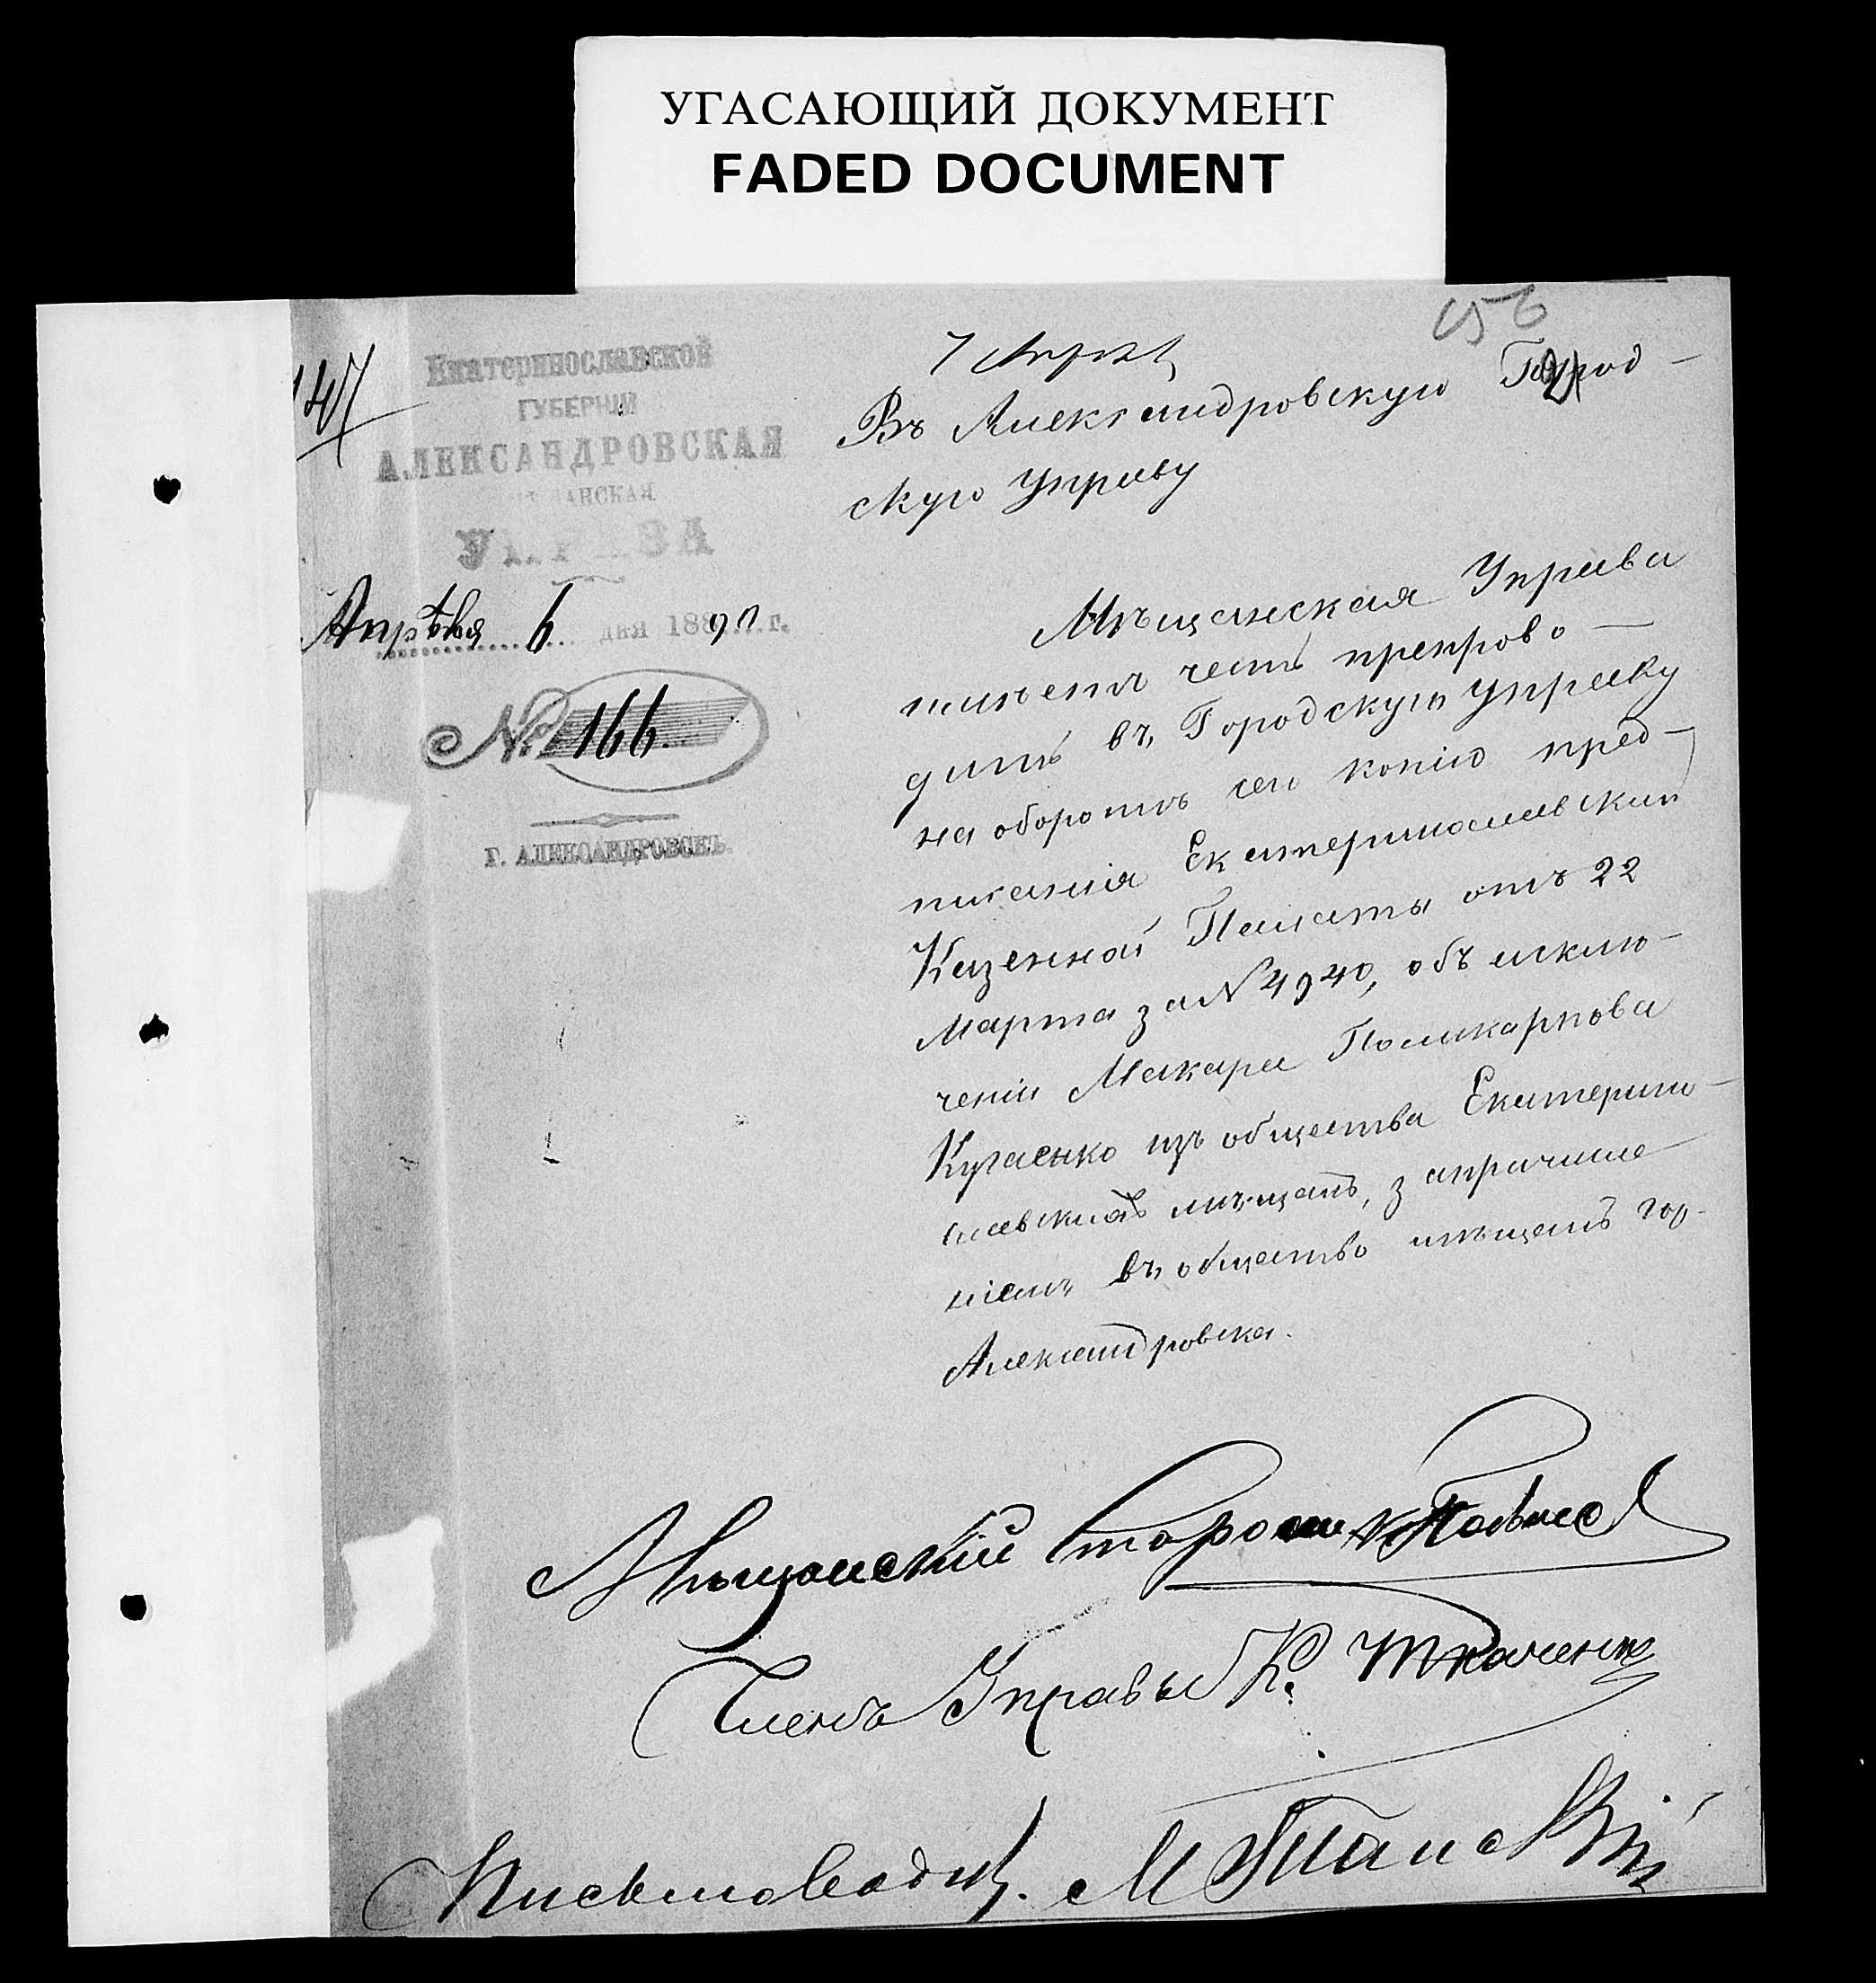 УГАСАЮЩИЙ ДОКУМЕНТ
FADED DOCUMENT
147
Екатеринославской
ГУБЕРНІИ
АЛЕКСАНДРОВСКАЯ
УПРАВА
Апрѣля 6 дня 1890 г.
№ 166
г. АЛЕКСАНДРОВСКЪ.
7 Апрѣл
Въ Александровскую Город-
скую Управу
Мѣщанская Управа
имѣетъ честь препрово-
дить въ Городскую Управу
на оборотѣ сего копію пред-
писанія Екатеринославской
Казенной Палаты отъ 22
Марта за № 4940, объ исклю-
ченіи Макара Поликарпова
изъ общества Екатерино-
славскихъ мѣщанъ, з апричисле
ніемъ въ общество мѣщанъ гор.
Александровска.
Мѣщанскій Староста
Членъ Управы К. Ткаченко
Письмоводит. М